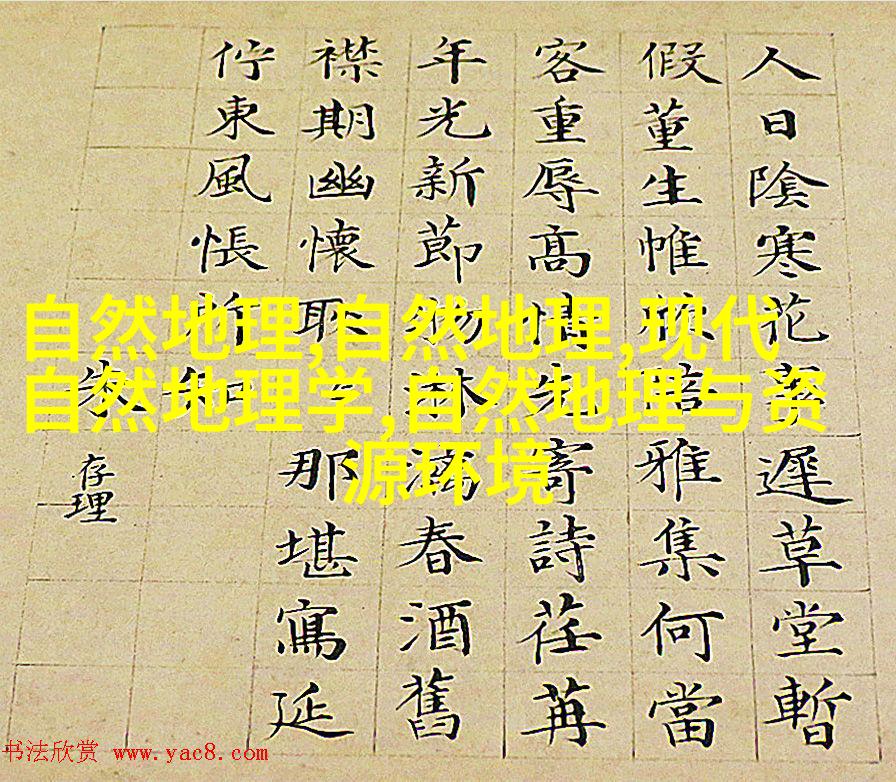 人日陰寒花遲草堂暫
假董生帷雅集何當
客重辱高情先寄詩荏苒
年光新節物淋漓春酒舊
襟期幽懷耿那堪寫延
佇東風悵
朱存理
自然地理,自然地理,现代
自然地理学,自然地理与资
源环境
书法欣赏 www.yac8.com